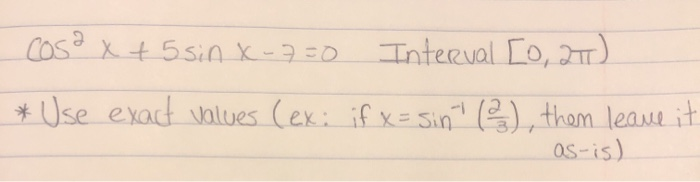 cos² x + 5 sin x - 7 = 0 Interval [0, 2π)
* Use exact values (ex: if x = sin⁻¹ (2/3), them leave it
as-is)